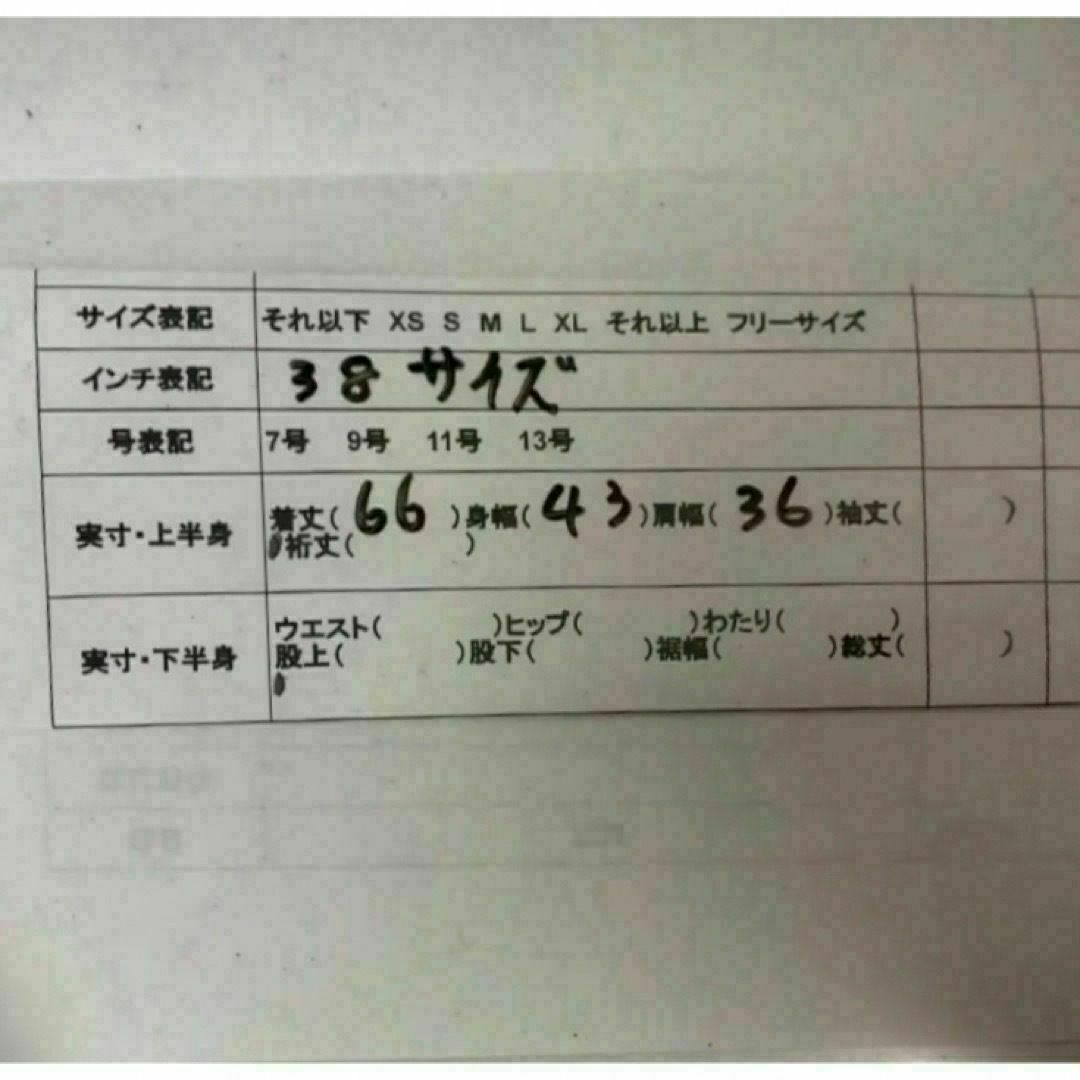 サイズ表記 それ以下 XS S M L XL それ以上 フリーサイズ
インチ表記 38サイズ
号表記 7号 9号 11号 13号
実寸・上半身 着丈( 66 )身幅( 43 )肩幅( 36 )袖丈( )
裄丈( )
実寸・下半身 ウエスト( )ヒップ( )わたり( )
股上( )股下( )裾幅( )総丈( )